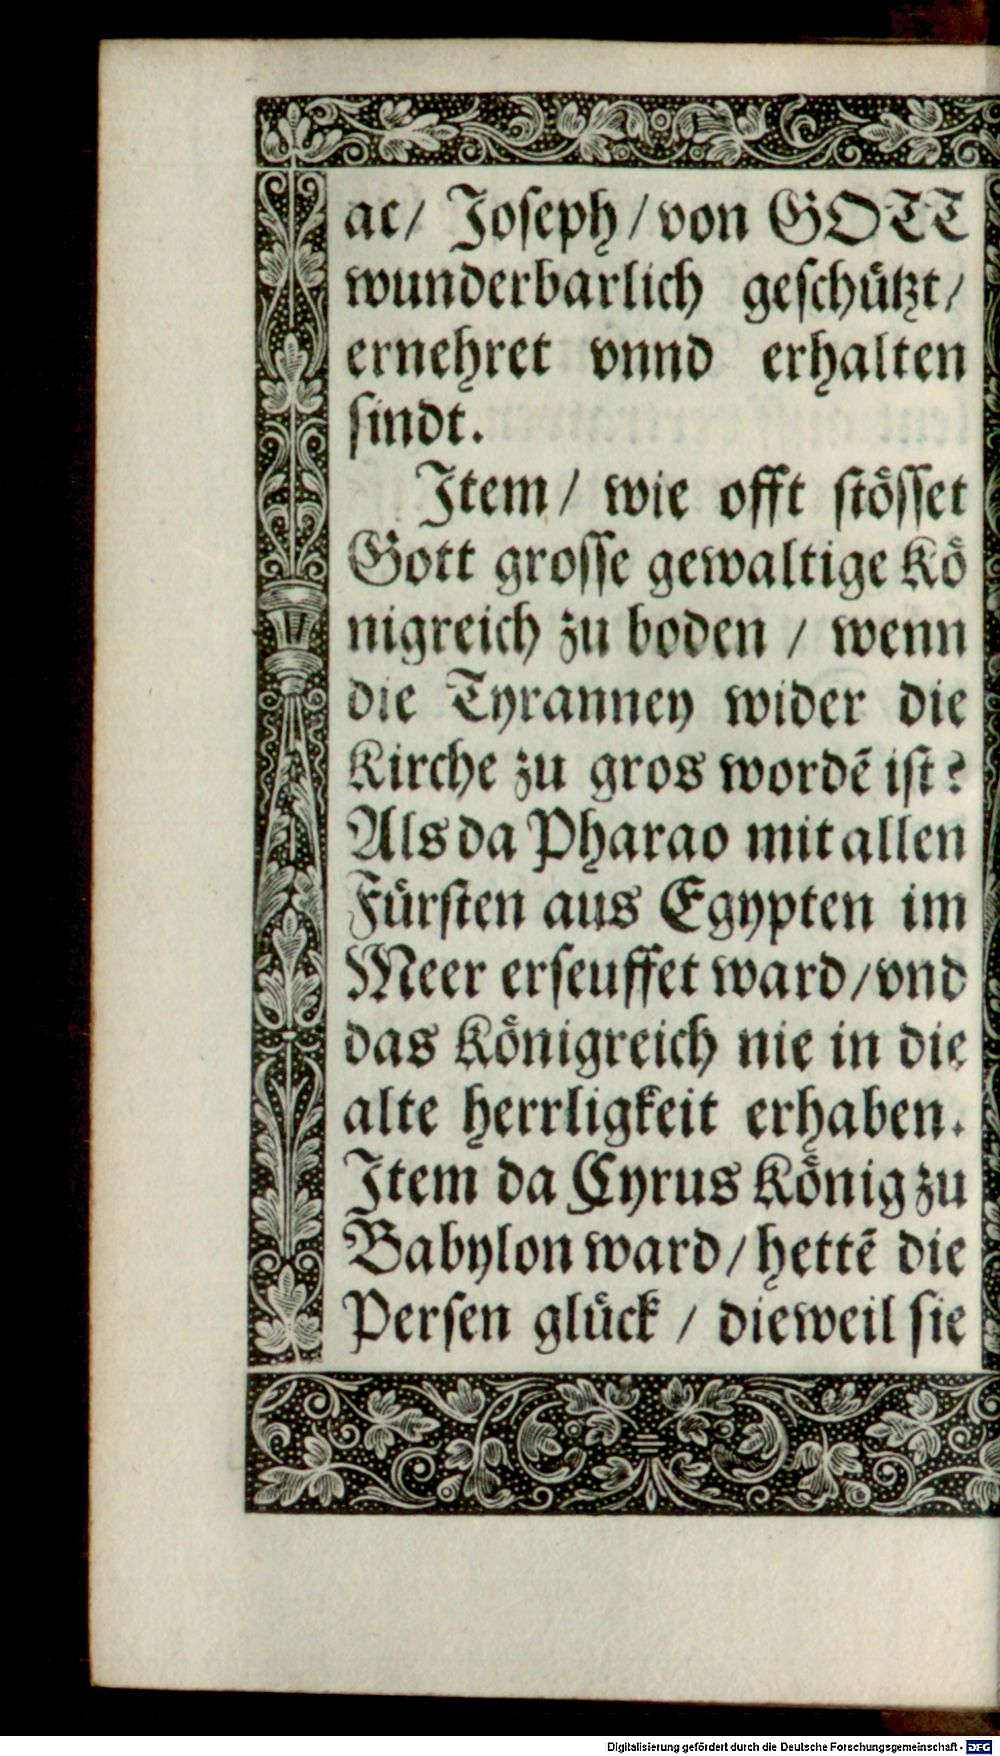 ac/ Joſeph/von GOTT
wunderbarlich geſchuͤtzt/
ernehret vnnd erhalten
ſindt.
Jtem/ wie offt ſtoͤſſet
Gott groſſe gewaltige Koͤ
nigreich zu boden / wenn
die Tyranney wider die
Kirche zu gros wordē iſt?
Als da Pharao mit allen
Fuͤrſten aus Egypten im
Meer erſeuffet ward/vnd
das Koͤnigreich nie in die
alte herrligkeit erhaben.
Jtem da Cyrus Koͤnig zu
Babylon ward/hettē die
Perſen gluͤck / dieweil ſie
Digitalisierung gefördert durch die Deutsche Forschungsgemeinschaft - DFG